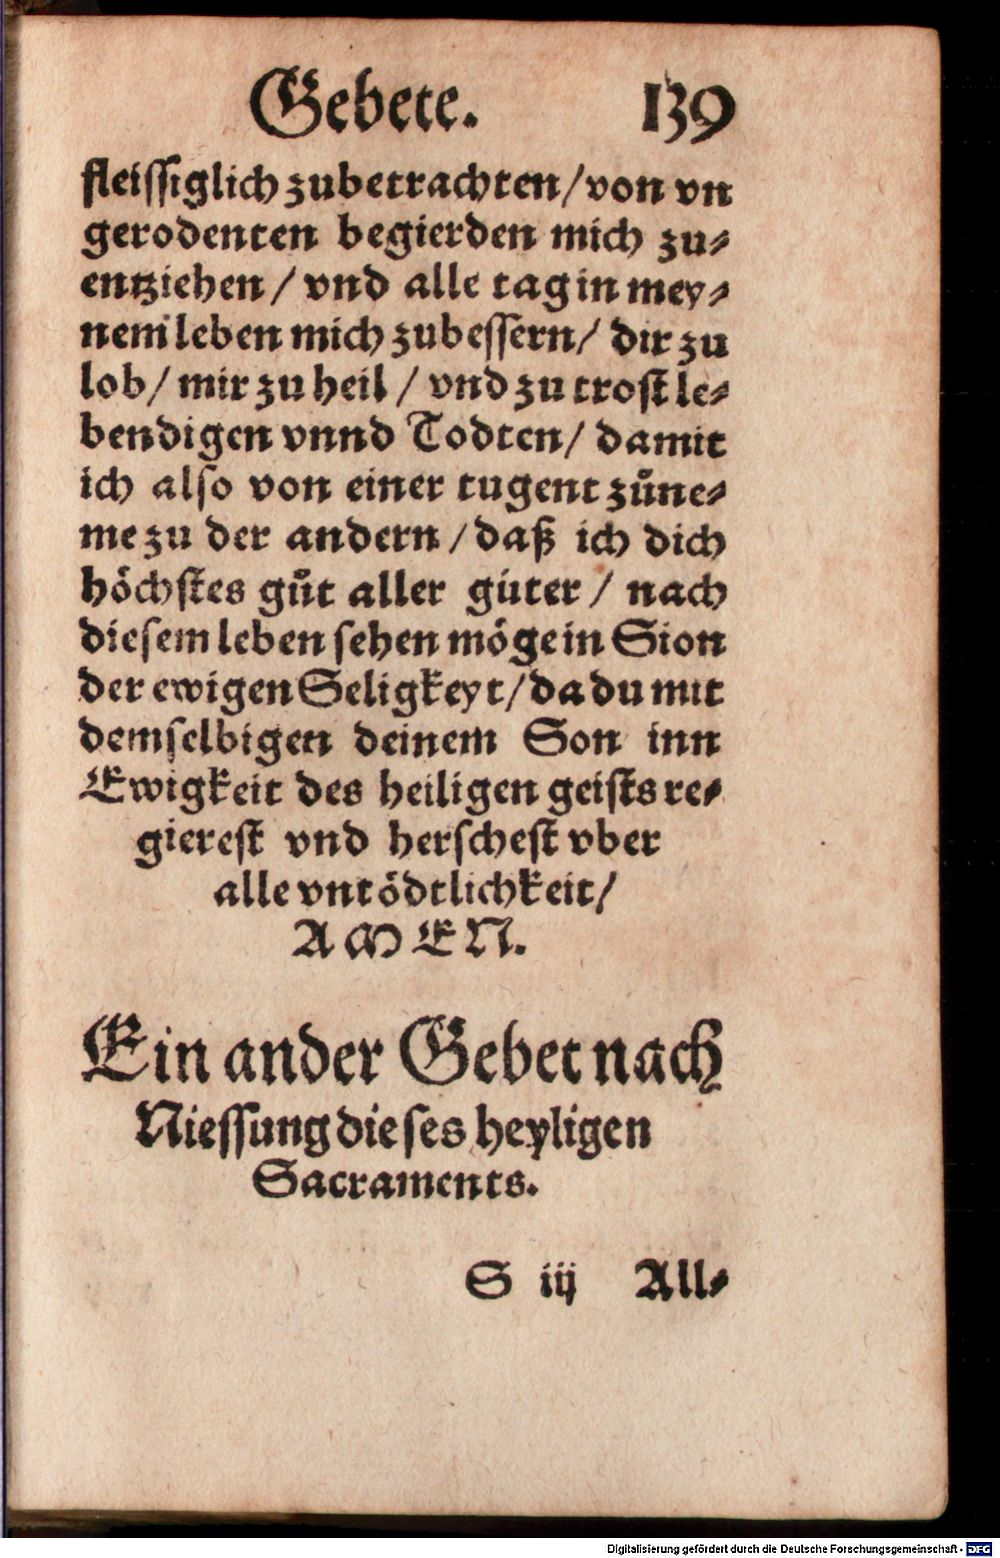 Gebete. 139
fleissiglich zubetrachten/ von vn
gerodenten begierden mich zu⸗
entziehen / vnd alle tag in mey⸗
nem leben mich zubessern/ dir zu
lob/ mir zu heil / vnd zu trost le⸗
bendigen vnnd Todten/ damit
ich also von einer tugent zůne⸗
me zu der andern / daß ich dich
höchstes gůt aller güter / nach
diesem leben sehen möge in Sion
der ewigen Seligkeyt/ da du mit
demselbigen deinem Son inn
Ewigkeit des heiligen geists re⸗
gierest vnd herschest vber
alle vntödtlichkeit/
AMEN.
Ein ander Gebet nach
Niessung dieses heyligen
Sacraments.
S iij All⸗
Digitalisierung gefördert durch die Deutsche Forschungsgemeinschaft - DFG